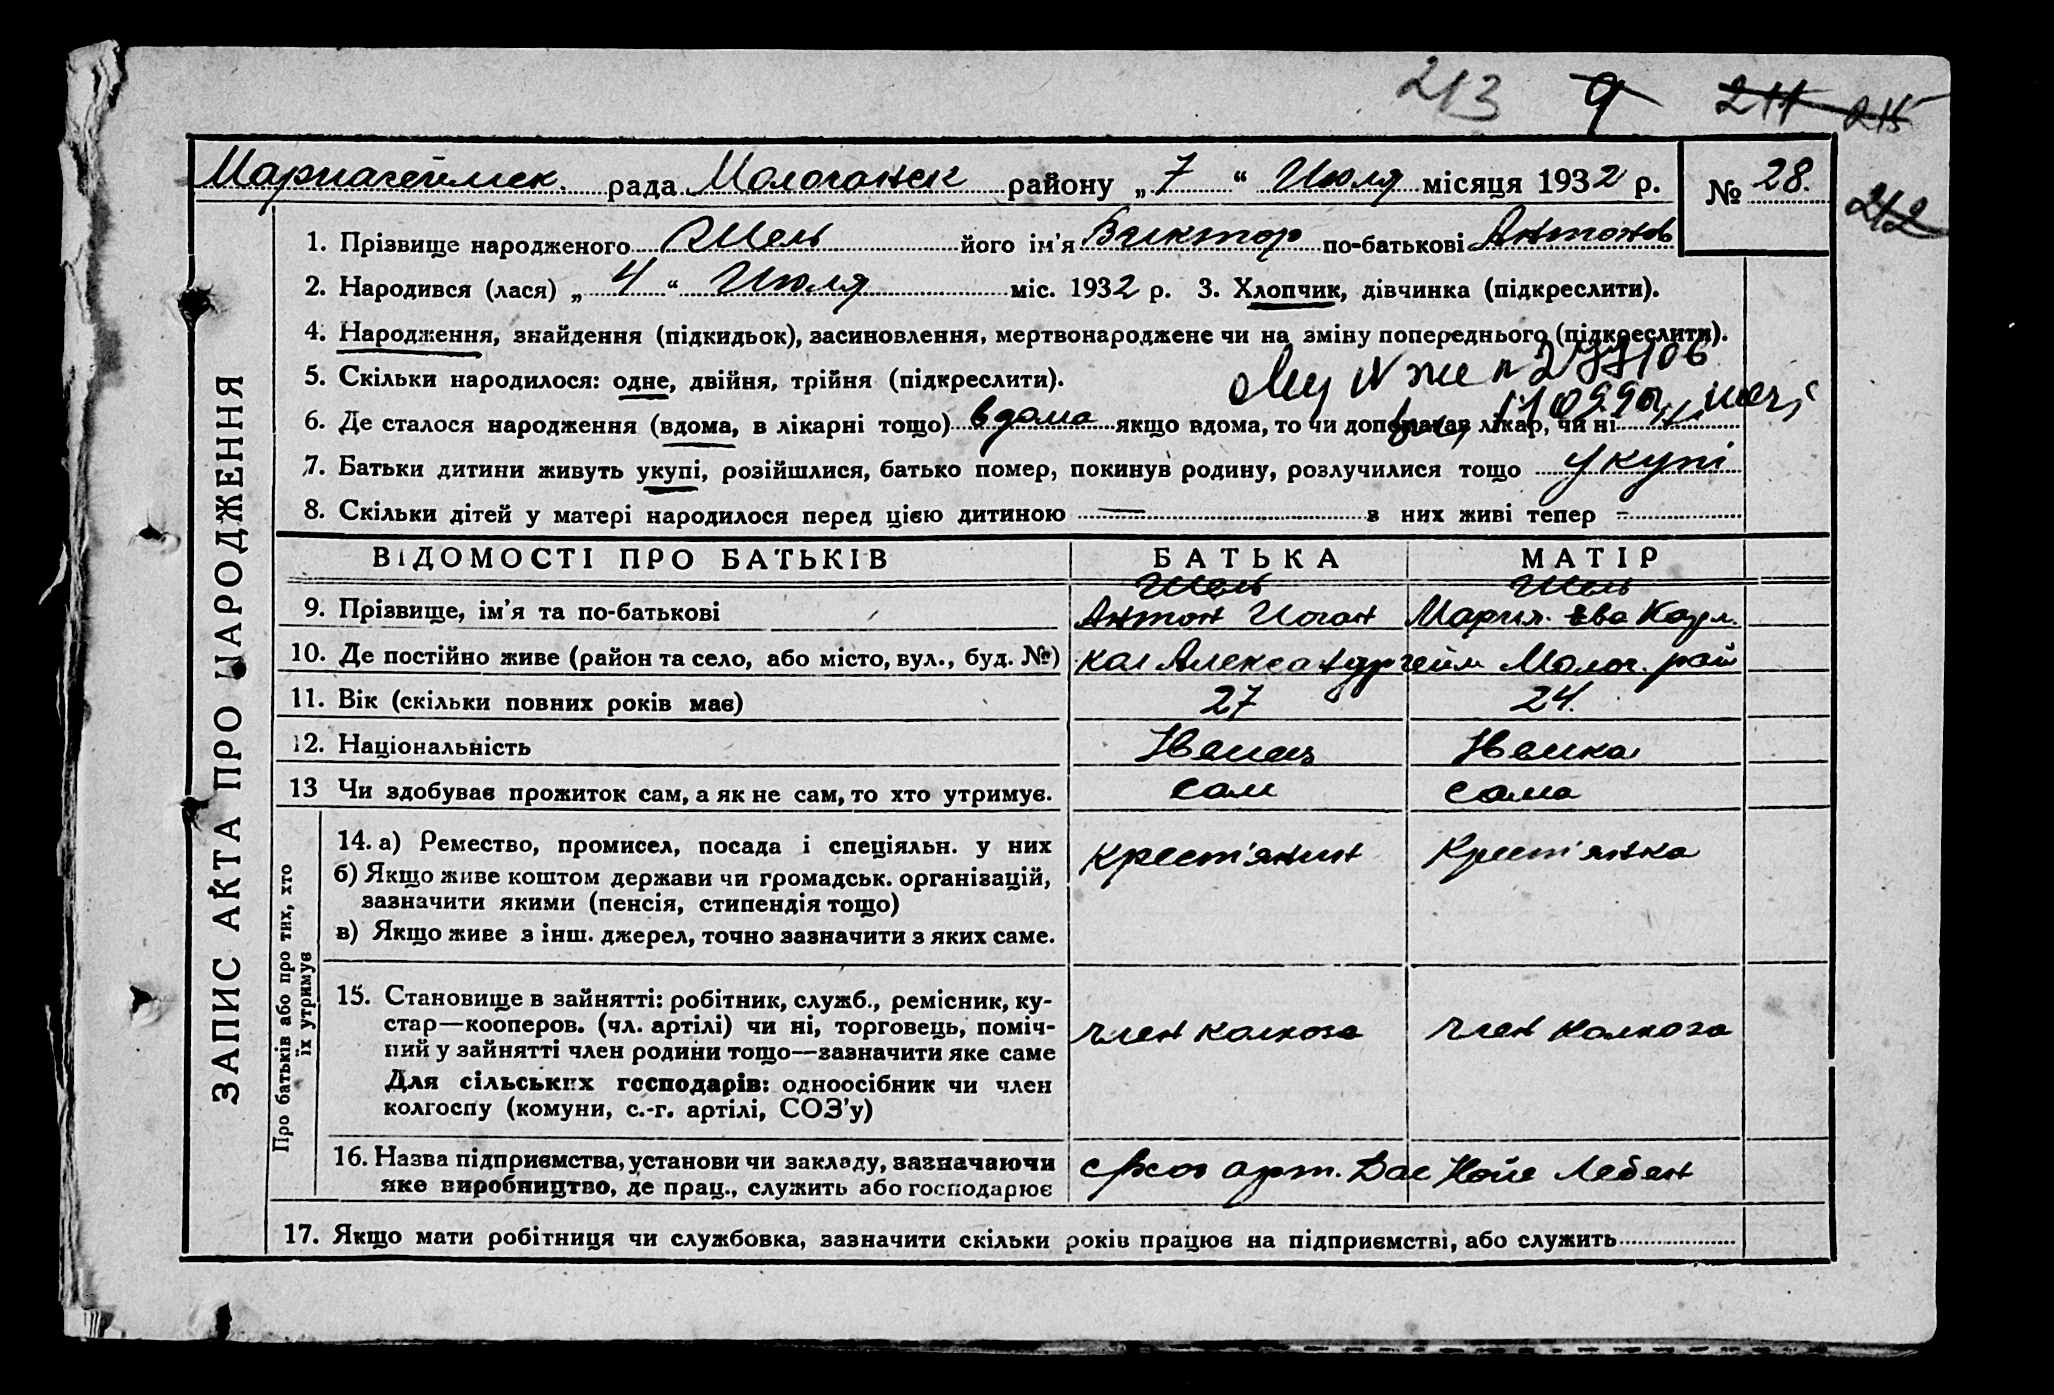 213 9 211 215
Мариагеймск. рада Молочанск району „7“ Июля місяця 1932 р. № 28.
212
1. Прізвище народженого Шель його ім'я Виктор по-батькові Антонов
2. Народився (лася) „4“ Июля міс. 1932 р. 3. Хлопчик, дівчинка (підкреслити).
4. Народження, знайдення (підкидьок), засиновлення, мертвонароджене чи на зміну попереднього (підкреслити).
5. Скільки народилося: одне, двійня, трійня (підкреслити).
6. Де сталося народження (вдома, в лікарні тощо) вдома якщо вдома, то чи допомагав лікар, чи ні
7. Батьки дитини живуть укупі, розійшлися, батько помер, покинув родину, розлучилися тощо укупі
8. Скільки дітей у матері народилося перед цією дитиною — з них живі тепер -
ЗАПИС АКТА ПРО НАРОДЖЕННЯ
ВІДОМОСТІ ПРО БАТЬКІВ БАТЬКА МАТІР
Шель Шель
9. Прізвище, ім'я та по-батькові Антон Иоган Мария. Ева Карл.
10. Де постійно живе (район та село, або місто, вул., буд. №) кол Александргейм Молоч. рай
11. Вік (скільки повних років має) 27 24.
12. Національність Нвмец Нвмка
13 Чи здобував прожиток сам, а як не сам, то хто утримує. сам сама
Про батьків або про тих, хто
їх утримує
14. а) Ремество, промисел, посада і спеціяльн. у них крест'янин Крест'янка
б) Якщо живе коштом держави чи громадськ. організацій,
зазначити якими (пенсія, стипендія тощо)
в) Якщо живе з інш. джерел, точно зазначити з яких саме.
15. Становище в зайнятті: робітник, служб., ремісник, ку-
стар—кооперов. (чл. артілі) чи ні, торговець, поміч- член колхоза член колхоза
ний у зайнятті член родини тощо—зазначити яке саме
Для сільських господарів: одноосібник чи член
колгоспу (комуни, с.-г. артілі, СОЗ'у)
16. Назва підприємства, установи чи закладу, зазначаючи
яке виробництво, де прац., служить або господарює с/хоз арт. Дас Нойе Лебен
17. Якщо мати робітниця чи службовка, зазначити скільки років працює на підприємстві, або служить